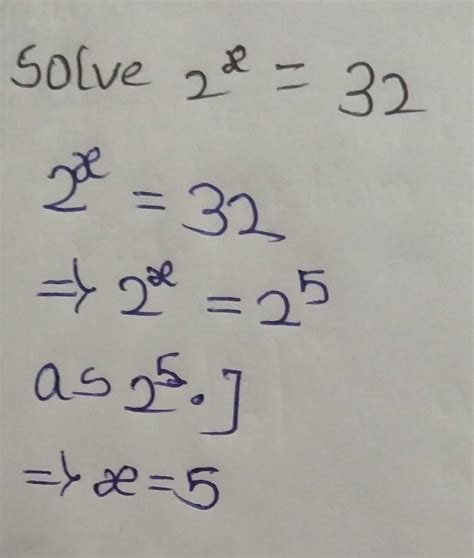 Solve 2^x = 32
2^x = 32
⇒ 2^x = 2^5
as 2^5 . ]
⇒ x = 5